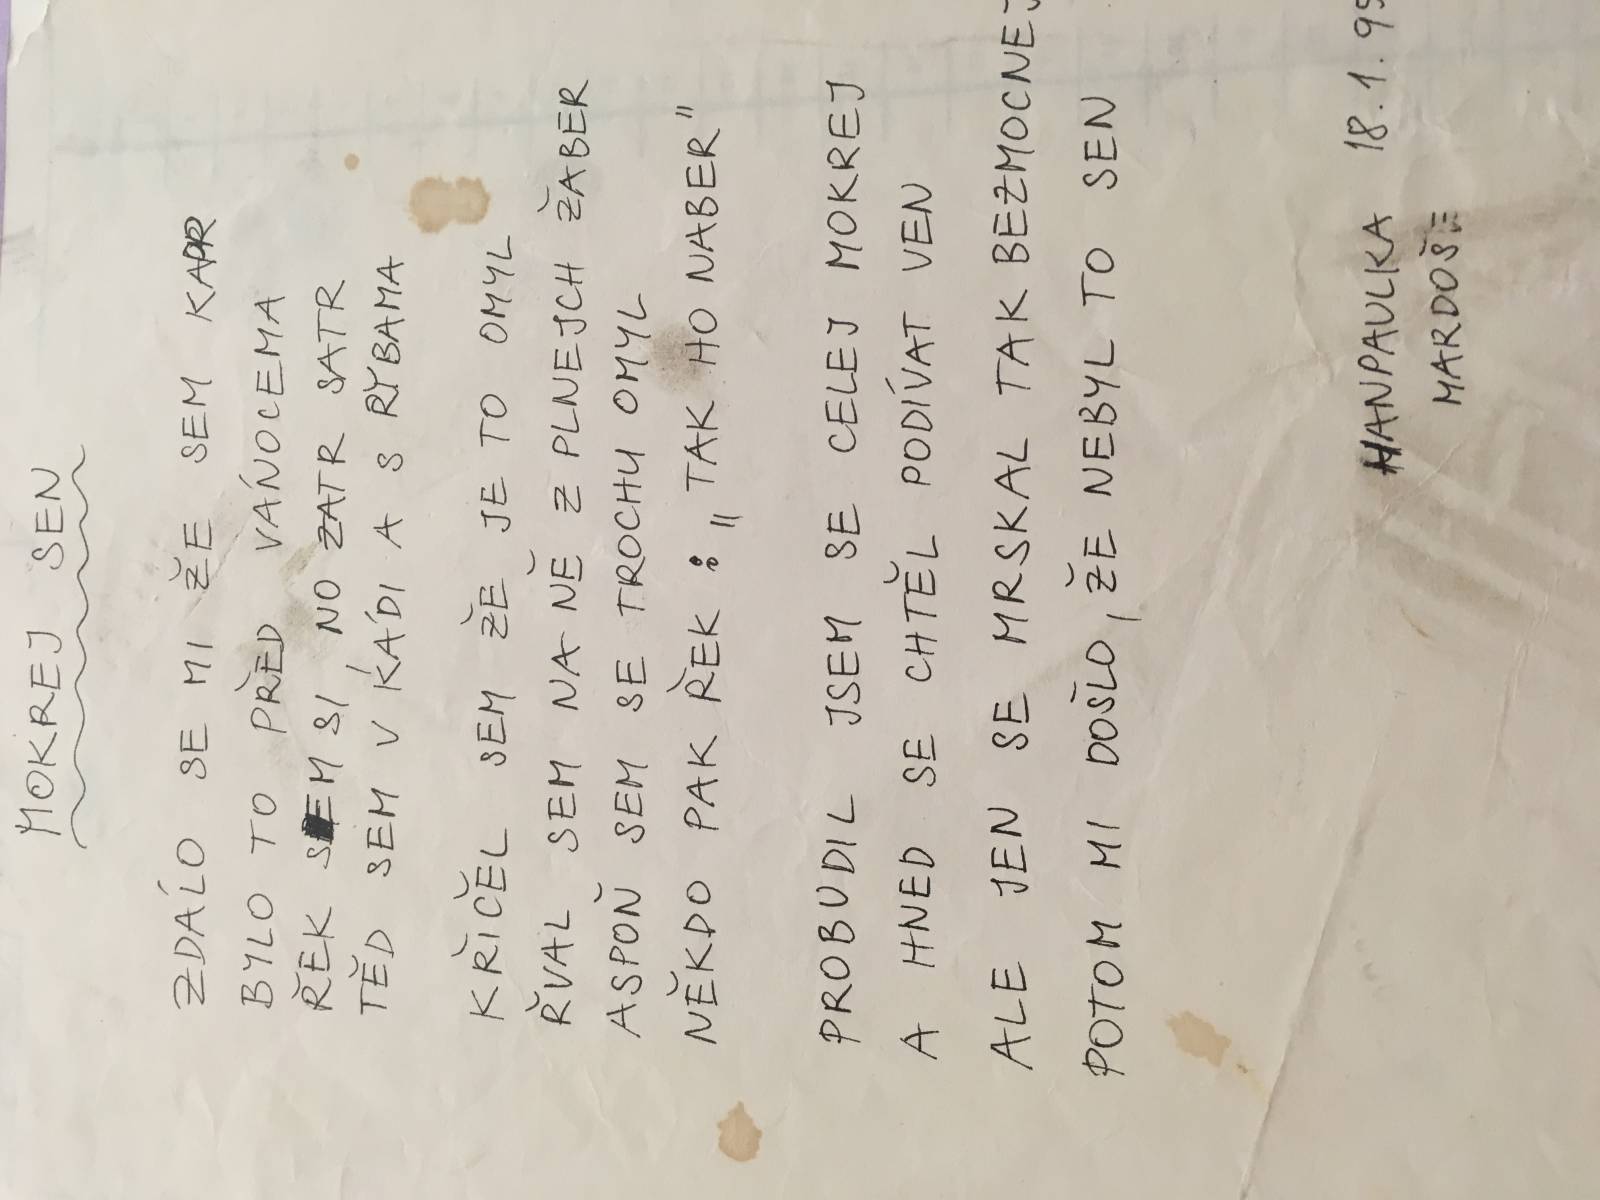 MOKREJ SEN
ZDÁLO SE MI ŽE SEM KAPR
BYLO TO PŘED VÁNOCEMA
ŘEK SEM SI NO ZATR SATR
TĚĎ SEM V KÁDI A S RYBAMA
KŘIČEL SEM ŽE JE TO OMYL
ŘVAL SEM NA NĚ Z PLNEJCH ŽABER
ASPOŇ SEM SE TROCHU OMYL
NĚKDO PAK ŘEK: „TAK HO NABER"
PROBUDIL JSEM SE CELEJ MOKREJ
A HNED SE CHTĚL PODÍVAT VEN
ALE JEN SE MRSKAL TAK BEZMOCNEJ
POTOM MI DOŠLO, ŽE NEBYL TO SEN
HANPAULKA 18.1.99
MARDOŠ